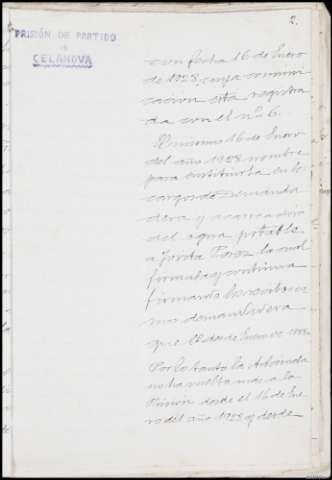 2.
PRISIÓN DE PARTIDO
DE
CELANOVA
con fecha 16 de Enero
de 1928, cuya comuni-
cación esta registra
da con el nº 6.
El mismo 16 de Enero
del año 1928 nombre
para sustituirla en los
cargos de Demanda
dera y acarreadora
del agua potable
a Perez la cual
y continua
firmando los recibos co
mo demandadera
que es desde Enero
Por lo tanto la
no ha vuelto mas a la
Prisión desde el 16 de Ene
ro del año 1928 y desde